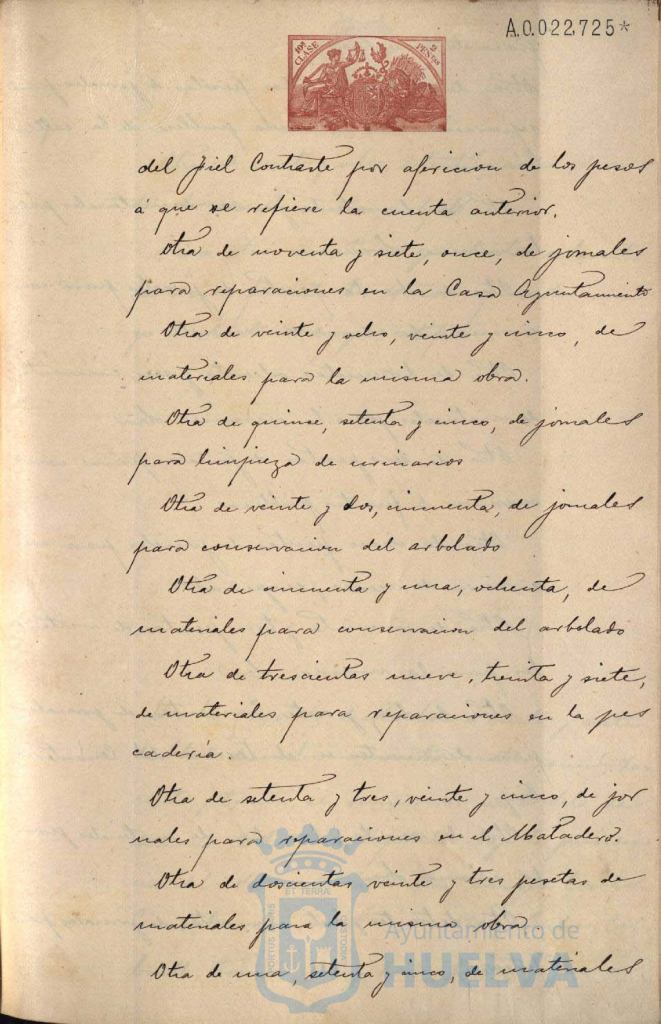 A.0.022.725*
10ª CLASE
2 PESETAS
del Fiel Contraste por afericion de los pesos
á que se refiere la cuenta anterior.
Otra de noventa y siete, once, de jornales
para reparaciones en la Casa Ayuntamiento
Otra de veinte y ocho, veinte y cinco, de
materiales para la misma obra.
Otra de quinse, setenta y cinco, de jornales
para limpieza de urinarios
Otra de veinte y dos, cincuenta, de jornales
para conservacion del arbolado
Otra de cincuenta y una, ochenta, de
materiales para conservacion del arbolado
Otra de trescientas nueve, treinta y siete,
de materiales para reparaciones en la pes
cadería.
Otra de setenta y tres, veinte y cinco, de jor
nales para reparaciones en el Matadero.
Otra de doscientas veinte y tres pesetas de
materiales para la misma obra.
Otra de una, setenta y cinco, de materiales
Ayuntamiento de
HUELVA